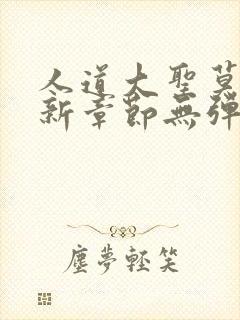 人道大聖莫
新章節無彈
塵夢輕笑